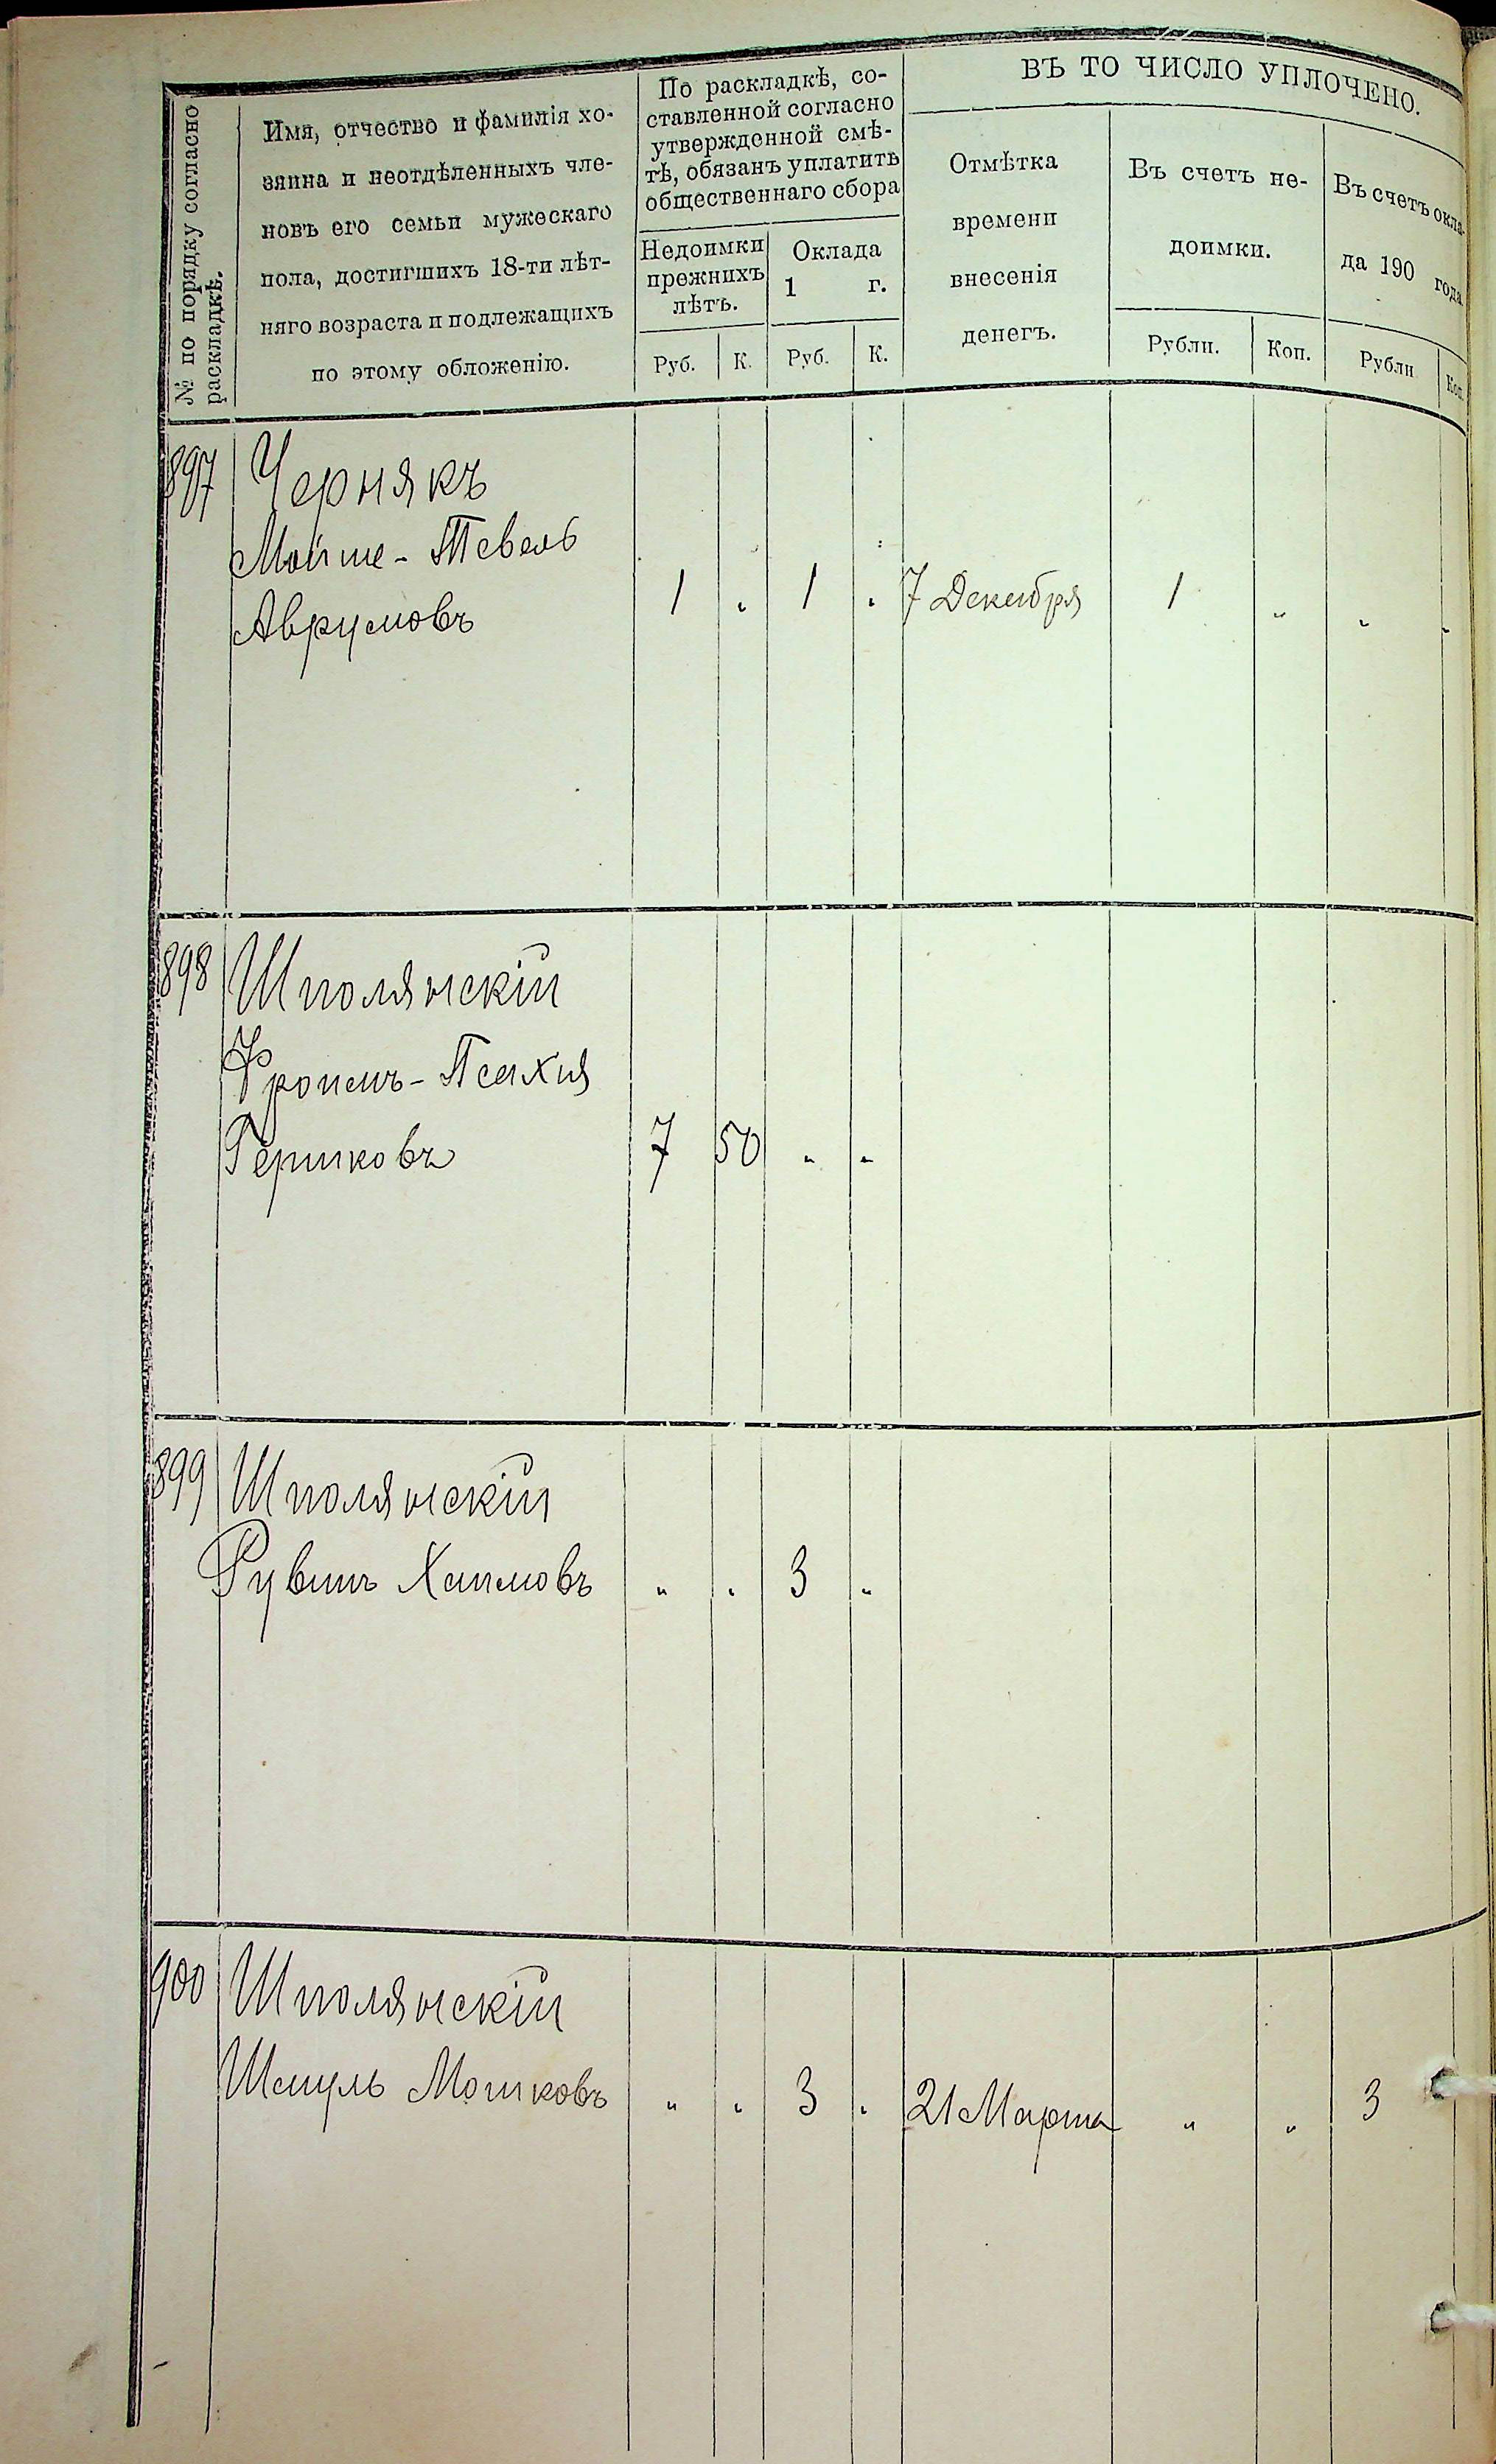 № по порядку согласно
раскладкѣ.
Имя, отчество и фамилія хо-
зяина и неотдѣленныхъ чле-
новъ его семьи мужескаго
пола, достигшихъ 18-ти лѣт-
няго возраста и подлежащихъ
по этому обложенію.
По раскладкѣ, со-
ставленной согласно
утвержденной смѣ-
тѣ, обязанъ уплатить
общественнаго сбора
Недоимки
прежнихъ
лѣтъ.
Руб. К.
Оклада
1 г.
Руб. К.
ВЪ ТО ЧИСЛО УПЛОЧЕНО.
Отмѣтка
времени
внесенія
денегъ.
Въ счетъ не-
доимки.
Рубли. Коп.
Въ счетъ окла-
да 190 года
Рубли Коп.
897 Чернякъ
Мойше-Тевель
Аврумовъ 1 „ 1 „ 7 Декабря 1 „ „ „
898 Шполянскій
Фроимъ-Псахия
Гершковъ 7 50 „ „
899 Шполянскій
Рувинъ Хаимовъ „ „ 3 „
900 Шполянскій
Шмуль Мошковъ „ „ 3 „ 21 Марта „ „ 3